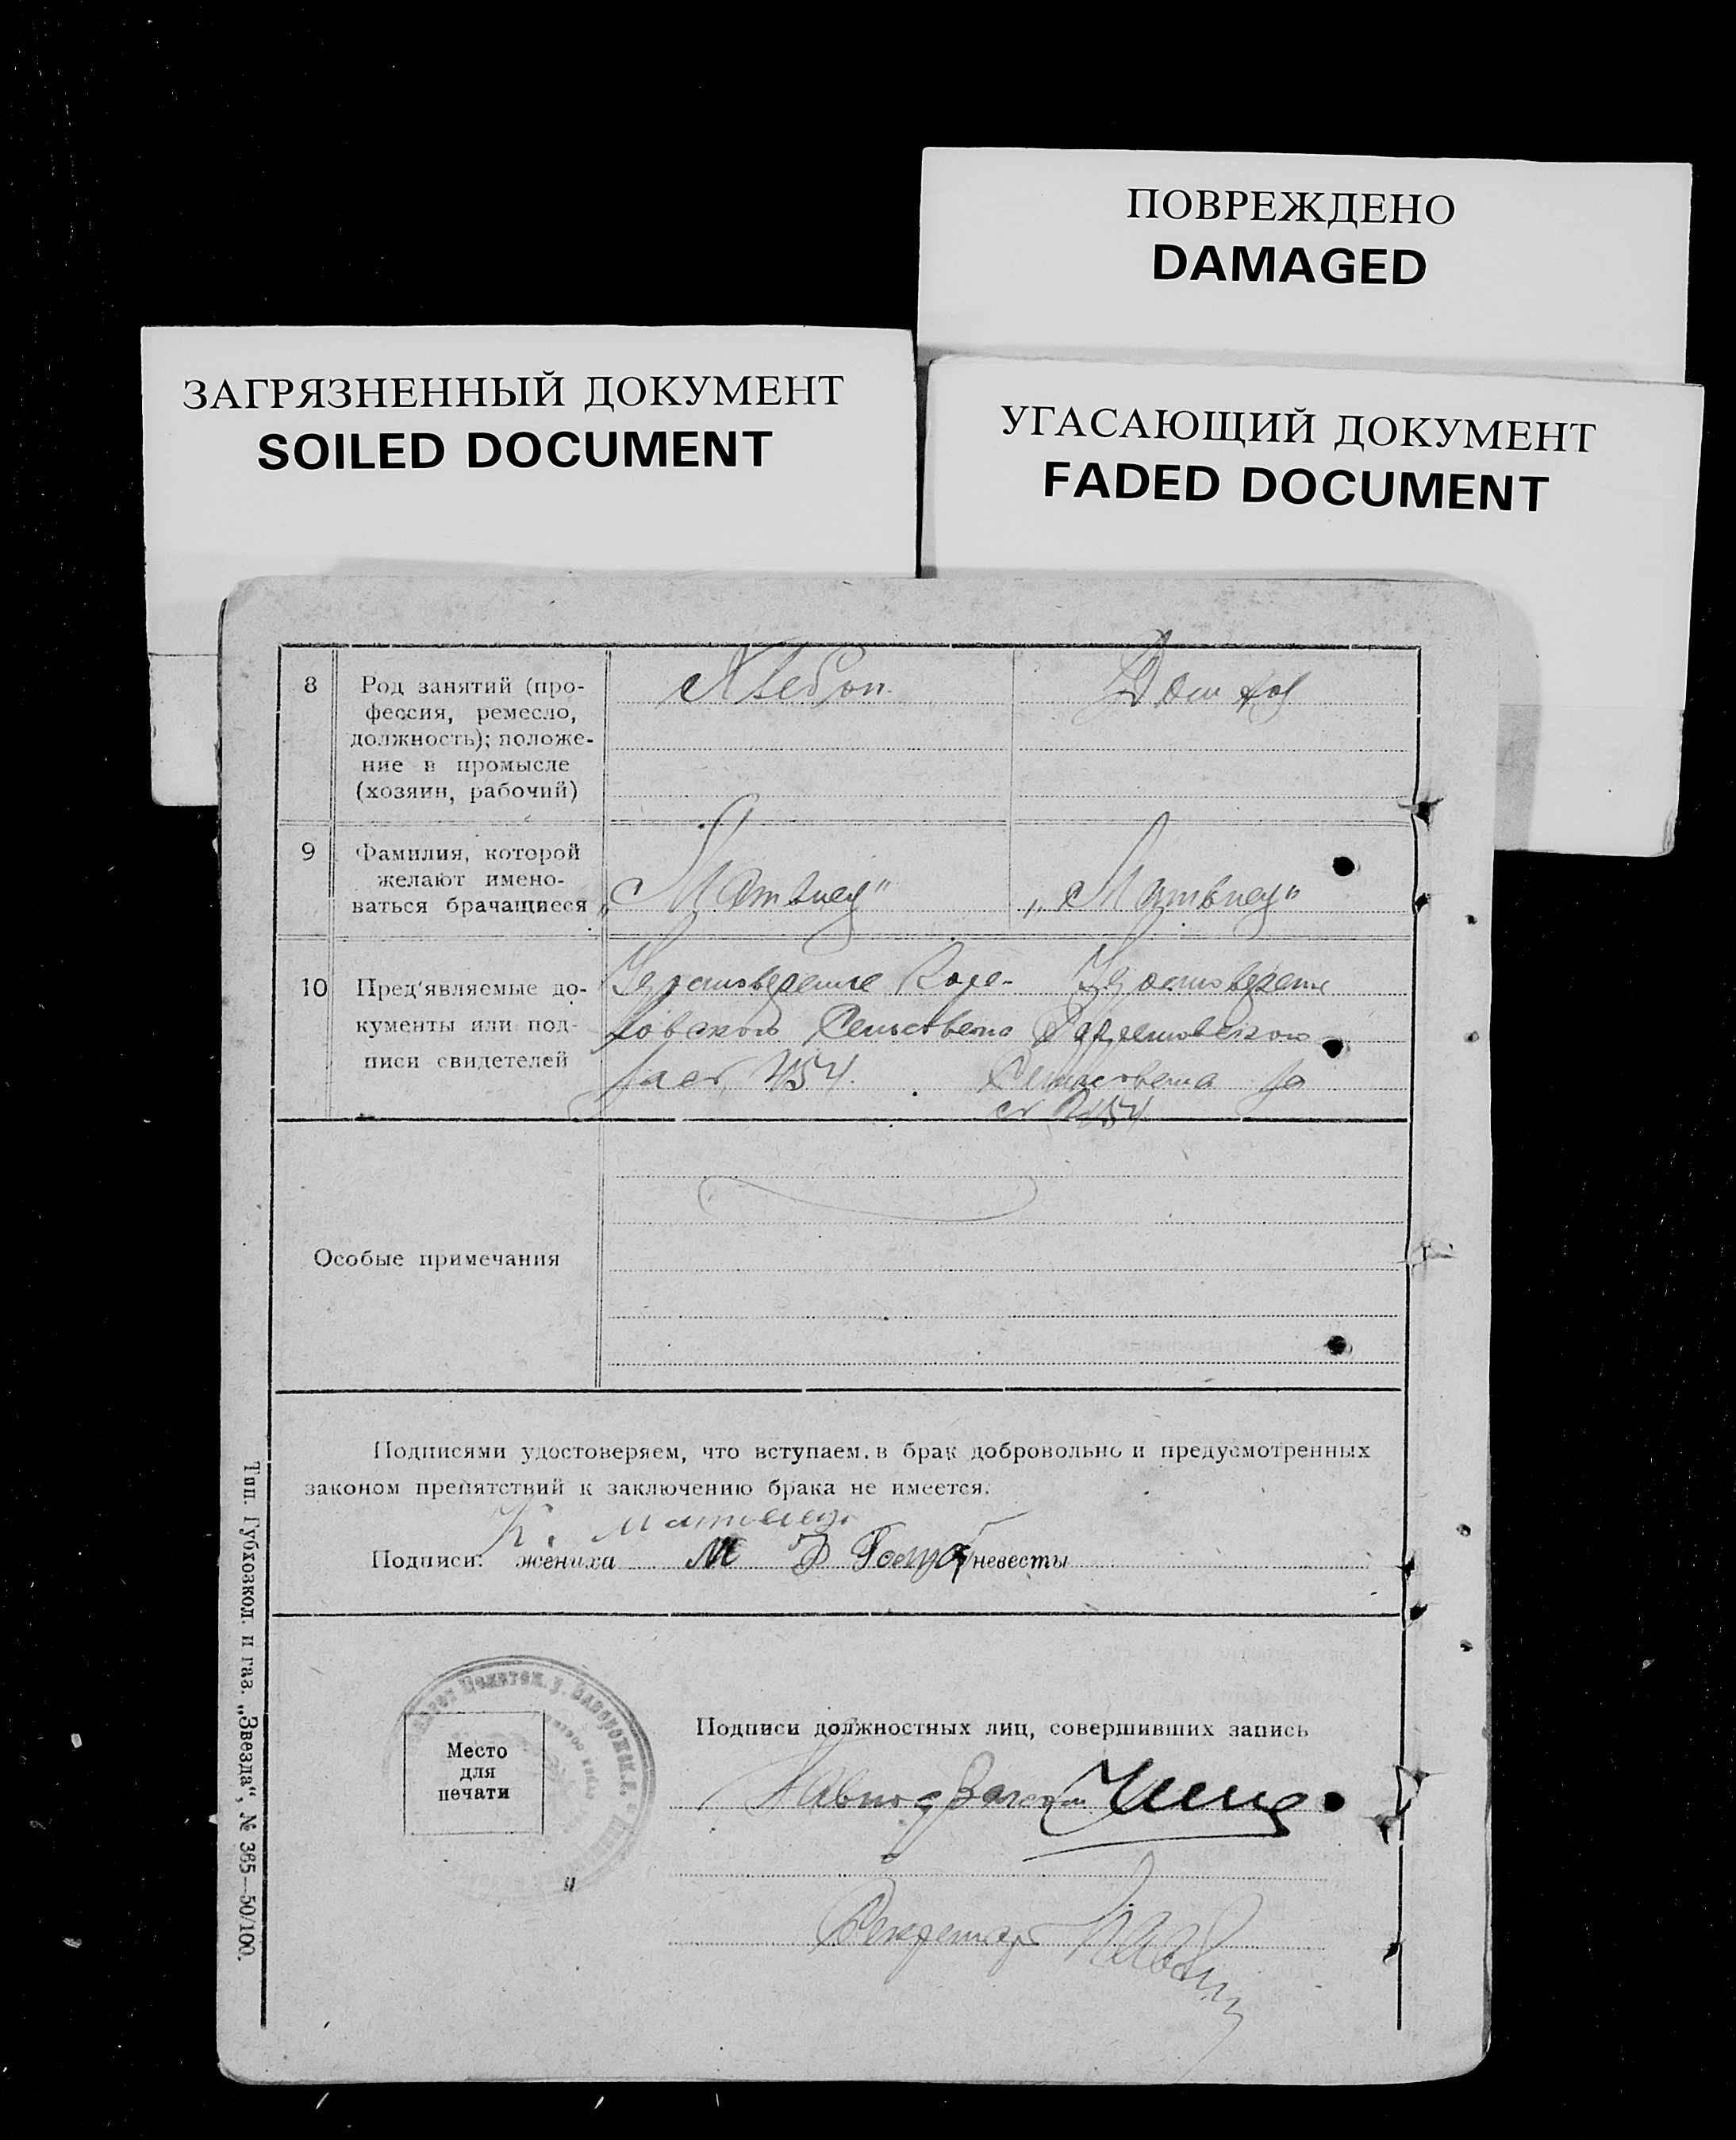 ПОВРЕЖДЕНО
DAMAGED
ЗАГРЯЗНЕННЫЙ ДОКУМЕНТ
SOILED DOCUMENT
УГАСАЮЩИЙ ДОКУМЕНТ
FADED DOCUMENT
8 Род занятий (про-
фессия, ремесло,
должность); положе-
ние в промысле
(хозяин, рабочий)
Хлебоп.
Дом хоз
9 Фамилия, которой
желают имено-
ваться брачащиеся
„Матвиец"
„Матвиец"
10 Пред'являемые до-
кументы или под-
писи свидетелей
Удостоверение
Сельсовета
за № 454.
Удостоверение
Сельсовета за
№ 454
Особые примечания
Подписями удостоверяем, что вступаем в брак добровольно и предусмотренных
законом препятствий к заключению брака не имеется.
К. Матвиец
Подписи: жениха М Ф Голуб невесты
Место
для
печати
Подписи должностных лиц, совершивших запись
Секретарь
Тип. Губхозкол. и газ. „Звезда", № 365—50/100.